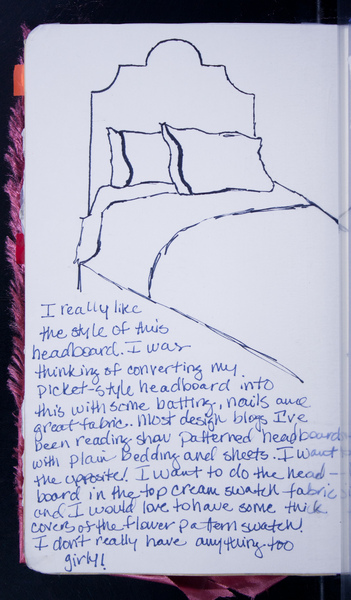 I really like
the style of this
headboard. I was
thinking of converting my
picket-style headboard into
this with some batting, nails and
great fabric. Most design blogs I've
been reading show patterned headboards
with plain bedding and sheets. I want
the opposite! I want to do the head-
board in the top cream swatch fabric
and I would love to have some thick
covers of the flower pattern swatch!
I don't really have anything too
girly!